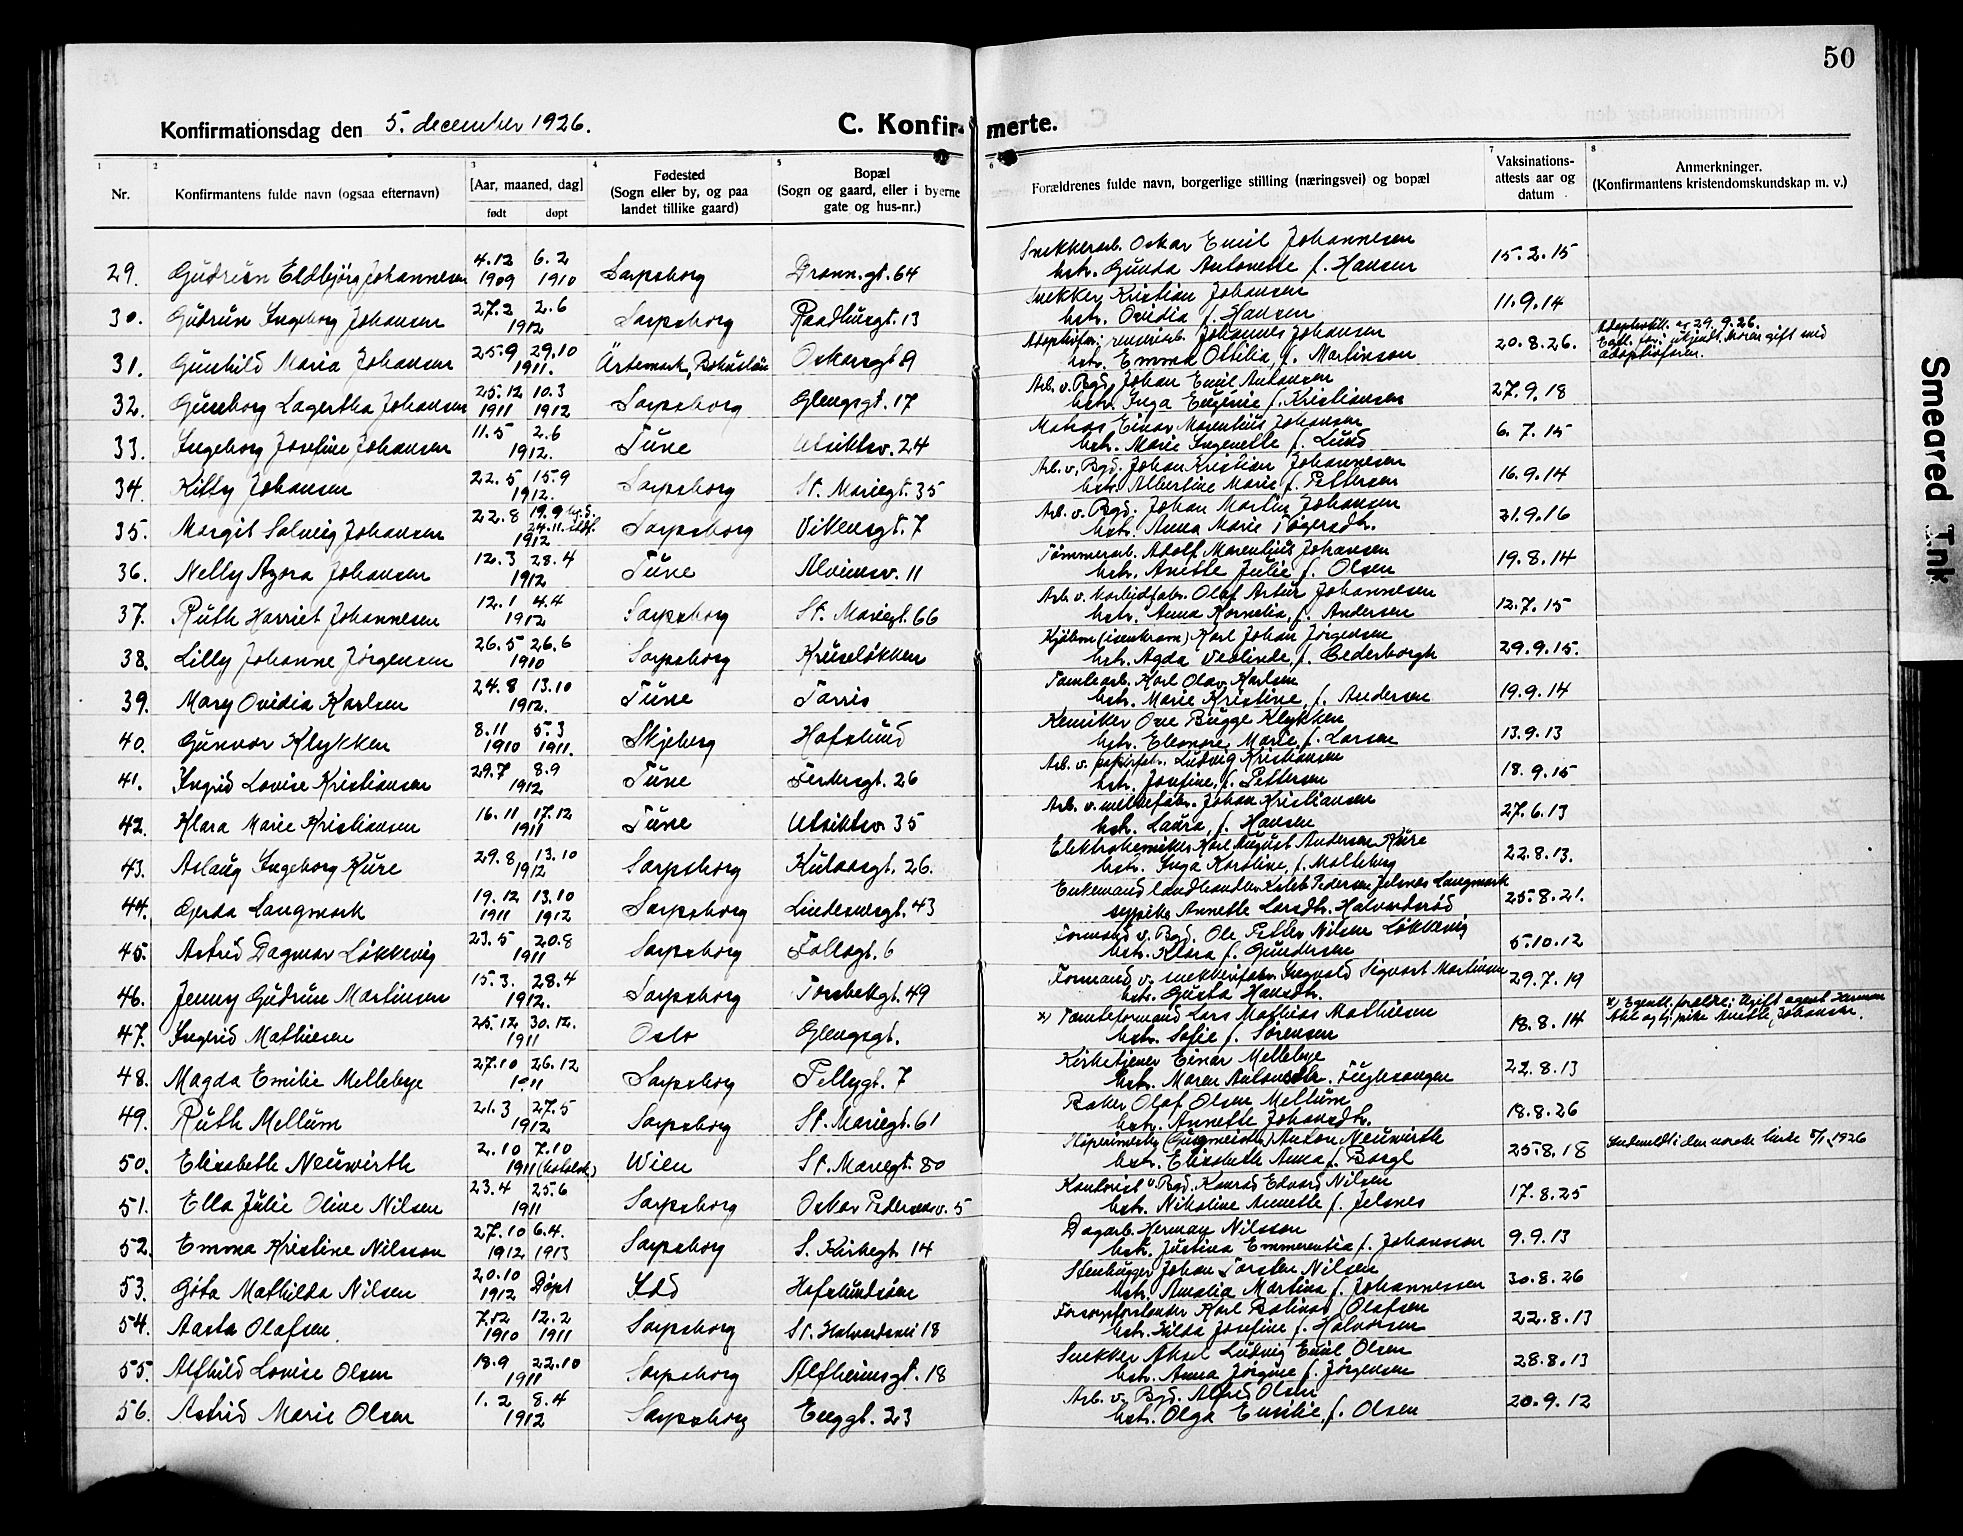 50
Konfirmationsdag den 5. december 1926.
C. Konfirmerte.
1 2 3 4 5 6 7 8
Nr.
Konfirmantens fulde navn (ogsaa efternavn)
[Aar, maaned, dag]
født døpt
Fødested
(Sogn eller by, og paa
landet tillike gaard)
Bopæl
(Sogn og gaard, eller i byerne
gate og hus-nr.)
Forældrenes fulde navn, borgerlige stilling (næringsvei) og bopæl
Vaksinations-
attests aar og
datum
Anmerkninger.
(Konfirmantens kristendomskundskap m. v.)
4.12 6.2 Snekkerarb. Oskar Emil Johannesen
29. Gudrun Eldbjørg Johannesen 1909 1910 Sarpsborg Dronn.gt. 64 hstr. Gunda Antonette f. Hansen 15.2.15
27.2 2.6 Snekker Kristian Johansen
30. Gudrun Ingeborg Johansen 1912 Sarpsborg Raadhusgt. 13 hstr. Ovidia f. Hansen 11.9.14
25.9 29.10 Adoptivfor.: renseriarb. Johannes Johansen Adoptivbev. 29.9.26.
31. Gunhild Maria Johansen 1911. Ärtemark, Bohuslän Oskarsgt 9 hstr. Emma Otilia, f. Martinson 20.8.26. Egtl. far: ukjendt. Moren gift med
adoptivfaren.
25.12 10.3 Arb. v. Bgd. Johan Emil Antonsen
32. Gunborg Lagertha Johansen 1911 1912 Sarpsborg Glengsgt. 17 hstr. Inga Eugenie f. Kristiansen 27.9.18
11.5 2.6 Matros Einar Marentius Johansen
33. Ingeborg Josefine Johansen 1912. Tune Utsiktsv. 24 hstr. Marie Ingenette f. Lund 6.7.15
22.5 15.9 Arb. v. Bgd. Johan Kristian Johannesen
34. Kitty Johansen 1912. Sarpsborg St. Mariegt. 35 hstr. Albertine Marie f. Pettersen 16.9.14
22.8 19.9 hj.d. 24.11. stadf. Arb. v. Bgd. Johan Martin Johansen
35. Margit Solveig Johansen 1912 Sarpsborg Vikensgt. 7 hstr. Anna Marie Tøgersdtr. 21.9.16
12.3 28.4 Tømmerarb. Adolf Marentius Johansen
36. Nelly Agora Johansen 1912 Tune Alvimsv. 11 hstr. Anette Julie f. Olsen 19.8.14
12.1 4.4 Arb. v. Karbidfabr. Olaf Artur Johannesen
37. Ruth Harriet Johannesen 1912 Sarpsborg St. Mariegt. 66 hstr. Anna Kornelia, f. Andersen 12.7.15
26.5 26.6 Kjøbm (isenkram) Karl Johan Jørgensen
38. Lilly Johanne Jørgensen 1910 Sarpsborg Kruseløkken hstr. Agda Veolinde, f. Cederborgh 29.9.15.
24.8 13.10 Tomtearb. Karl Olav Karlsen
39. Mary Ovidia Karlsen 1912. Tune Torris hstr. Marie Kristine, f. Andersen 19.9.14
8.11 5.3 Kemiker Ove Bugge Klykken
40. Gunvor Klykken 1910 1911. Skjeberg Hafslund hstr. Eleonore Marie, f. Larsen 13.9.13
29.7 8.9 Arb. v. papirfabr. Ludvig Kristiansen
41. Ingrid Lovise Kristiansen 1912 Tune Festersgt. 26 hstr. Josefine, f. Pettersen 18.9.15
16.11 17.12 Johan Kristiansen
42. Klara Marie Kristiansen 1911 Tune Utsiktsv. 35 hstr. Laura, f. Hansen 27.6.13
29.8 13.10 Elektrokemiker Karl August Andersen Kure
43. Aslaug Ingeborg Kure 1912 Sarpsborg Kulaasgt. 26. hstr. Inga Karoline, f. Malleberg 22.8.13.
19.12 13.10 Enkemand landhandler Kaleb Pedersen Jelsnes Langmark
44. Gerda Langmark 1911 1912 Sarpsborg Lindemsgt. 43 sypike Annette Larsdtr. Halvardsrød 25.8.21.
23.5 20.8 Formand v. Bgd. Ole Petter Nilsen Løkkevig
45. Astrid Dagmar Løkkevig 1911 Sarpsborg Tollsgt. 6 hstr. Klara f. Gundersen 5.10.12
15.3. 28.4 Formand v. snekkerifabr. Ingvald Sigvart Martinsen
46. Jenny Gudrun Martinsen 1912. Sarpsborg Torsbekkgt. 49 hstr. Gusta Hansdtr. 29.7.19
25.12 30.12. x) Tomteformand Lars Mathias Mathiesen x) Egentl. forældre: Ugift agent Herman
47. Ingrid Mathiesen 1911 Oslo Glengsgt. hstr. Sofie f. Sørensen 18.8.14 og tj.pike Anette Johansen.
27.10 26.12 Kirketjener Einar Mellebye
48. Magda Emilie Mellebye 1911 Sarpsborg Pellygt. 7 hstr. Maren Antonsdtr. Fuglesangen 22.8.13
21.3 27.5 Baker Olaf Olsen Mellum
49. Ruth Mellum 1912 Sarpsborg St. Mariegt. 61 hstr. Annette Johansdtr. 18.8.26
2.10 7.10 Støperimester (Gussmeister) Anton Neuwirth
50. Elisabeth Neuwirth 1911 (katolsk) Wien St. Mariegt. 80 hstr. Elisabeth Anna f. Bargl 25.8.18 Indmeldt i den norske kirke 1926
23.4 25.6 Kontorist v Bgd. Konrad Edvard Nilsen
51. Ella Julie Oline Nilsen 1911 Sarpsborg Oskar Pedersensv. 5 hstr. Nikoline Annette f. Jelsnes 17.8.25
27.10 6.4. Dagarb. Herman Nilsson
52. Emma Kristine Nilsson 1912 1913 Sarpsborg S. Kirkegt. 14 hstr. Justina Emmerentia f. Johansson 9.9.13
20.10 Døpt Stenhugger Johan Torsten Nilsen
53. Gøta Mathilda Nilsen 1912 Idd Hafslundsøen hstr. Amalia Martina f. Johannessen 30.8.26
7.12 12.2 Karl Bolinas Olafsen
54. Aasta Olafsen. 1910 1911 Sarpsborg St. Halvardsvei 18 hstr. Hilda Josefine f. Halvorsen 22.8.13
18.9 22.10 Snekker Aksel Ludvig Emil Olsen
55. Alfhild Lovise Olsen 1911 Sarpsborg Alfheimsgt. 18 hstr. Anna Jørgine f. Jørgensen 28.8.13
1.2 8.4 Arb. v. Bgd. Alfred Olsen
56. Astrid Marie Olsen 1912 Sarpsborg Enggt. 23 hstr. Olga Emilie, f. Olsen 20.9.12
Smeared Ink